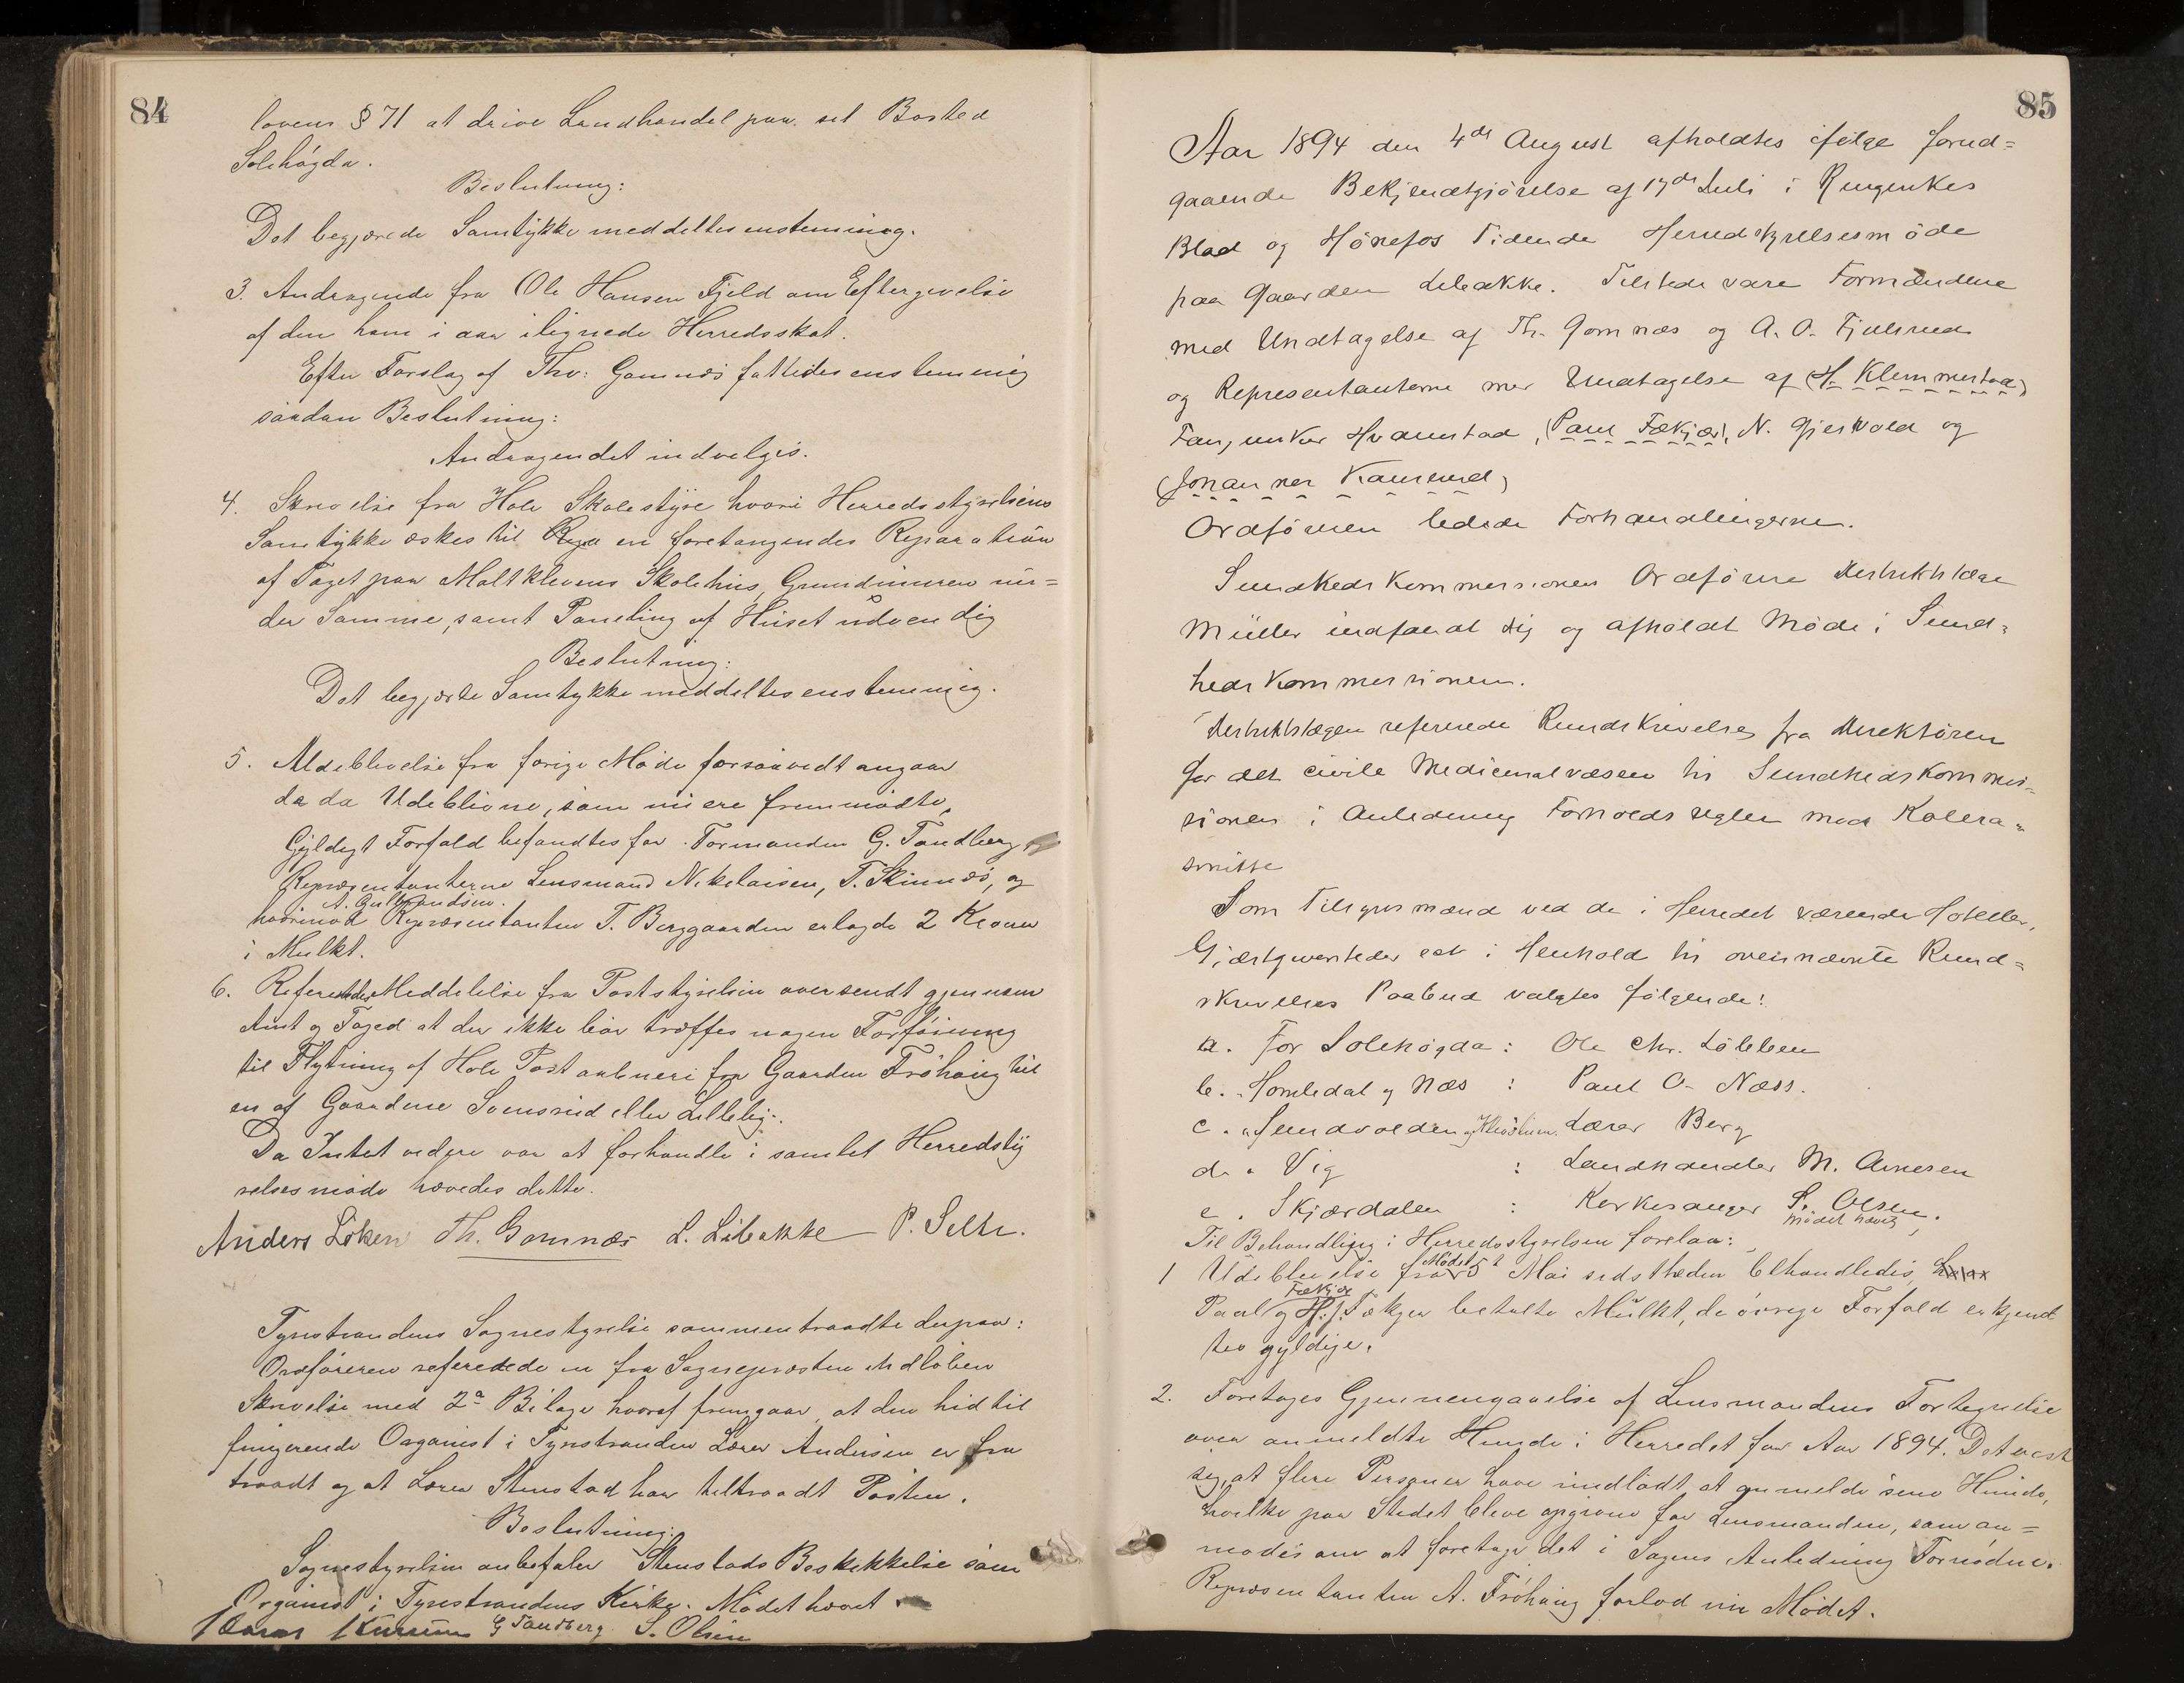 84
lovens § 71 at drive Landhandel paa sit Bosted
Solehögda.
Beslutning:
Det begjærede Samtykke meddeltes enstemmig.
3. Andragende fra Ole Hansen Fjeld om Eftergivelse
af den ham i aar ilignede Herredsskat.
Efter Forslag af Thv: Gomnæs fattedes enstemmig
saadan Beslutning:
Andragendet indvilges.
4. Skrivelse fra Hole Skolestyre hvori Herredsstyrelsens
Samtykke æskes til en foretagendes Reparation
af Taget paa Moltklevens Skolehus, Grundmuren un=
der Samme, samt Paneling af Huset udvendig
Beslutning:
Det begjærte Samtykke meddeltes enstemmig.
5. Udeblivelse fra forige Möde forsaavidt angaar
de da Udeblivne, som nu ere fremmödte.
Gyldigt Forfald befandtes for Formanden G. Tandberg
Repræsentanterne Lensmand Nikolaisen, T. Skinnæs, og
A. Gulbrandsen.
hvorimod Repræsentanten T. Berggaarden erlagde 2 Kroner
i Mulkt.
6. Referertes Meddelelse fra Poststyrelsen oversendt gjennem
Amt og Foged at der ikke bör træffes nogen Forföining
til Flytning af Hole Postaabneri fra Gaarden Fröhaug til
en af Gaardene Svensrud eller Lillelig.
Da Intet videre var at forhandle i samlet Herredsty
relsesmöde hævedes dette.
Anders Löken Th. Gomnæs L. Libakke P. Selte.
Tyrstrandens Sognestyrelse sammentraadte derpaa:
Ordföreren refererede en fra Sognepræsten indloben
Skrivelse med 2 Bilage hvoraf fremgaar, at den hidtil
fungerende Organist i Tyrstranden Lærer Andersen er fra
traadt og at Lærer Stenstad har tiltraadt Posten.
Beslutning:
Sognestyrelsen anbefaler Stenstads Beskikkelse som
Organist i Tyrstrandens Kirke. Mödet hævet
G Tandberg S. Olsen
85
Aar 1894 den 4de August afholdtes ifölge forud=
gaaende Bekjendtgjörelse af 17de Juli i Ringerikes
Blad og Hönefos Tidende Herredsstyrelsesmöde
paa Gaarden Libakke. Tilstede vare Formændene
med Undtagelse af Th. Gomnæs og A. O. Fjulsrud
og Representanterne med Undtagelse af (H. Klemmetsrud)
Fanejunker Hvamstad, (Paul Fækjær), N. Gjesvold og
(Johannes Kamsrud)
Ordföreren ledede Forhandlingerne.
Sundhedskommissionens Ordförer Distriktslæge
Müller indfandt sig og afholdt Möde i Sund=
hedskommissionen.
Distriktslægen refererede Rundskrivelse fra Direktören
for det civile Medicinalvæsen til Sundhedskommis=
sionen i Anledning Forholdsregler mod Kolera=
smitte
Som Tilsynsmænd ved de i Herredet værende Hoteller,
Gjæstgiversteder etc i Henhold til ovennævnte Rund=
skrivelses Paabud valgtes fölgende:
a. For Solehögda: Ole Chr. Lökken
b. " Homledal og Næs : Paul O. Næss.
c. " Sundvolden og Klevstuen. Lærer Berg
d. " Vig : Landhandler M. Arnesen
e. " Skjærdalen : Kirkesanger S. Olsen.
Mödet hævet
Til Behandling i Herredsstyrelsen forelaa:
1 Udeblivelse fra Mödet 5t Mai sidstleden behandledes
Fækjær
Paul og H. J. Fækjær betalte Mulkt, de övrige Forfald erkjend
tes gyldige.
2. Foretoges Gjennemgaaelse af Lensmandens Fortegnelse
over anmeldte Hunde i Herredet for Aar 1894. Det viste
sig, at flere Personer have undladt at anmelde sine Hunde,
hvilke paa Stedet bleve opgivne for Lensmanden, som an=
modes om at foretage det i Sagens Anledning Fornödne.
Repræsentanten A. Fröhaug forlod nu Mödet.